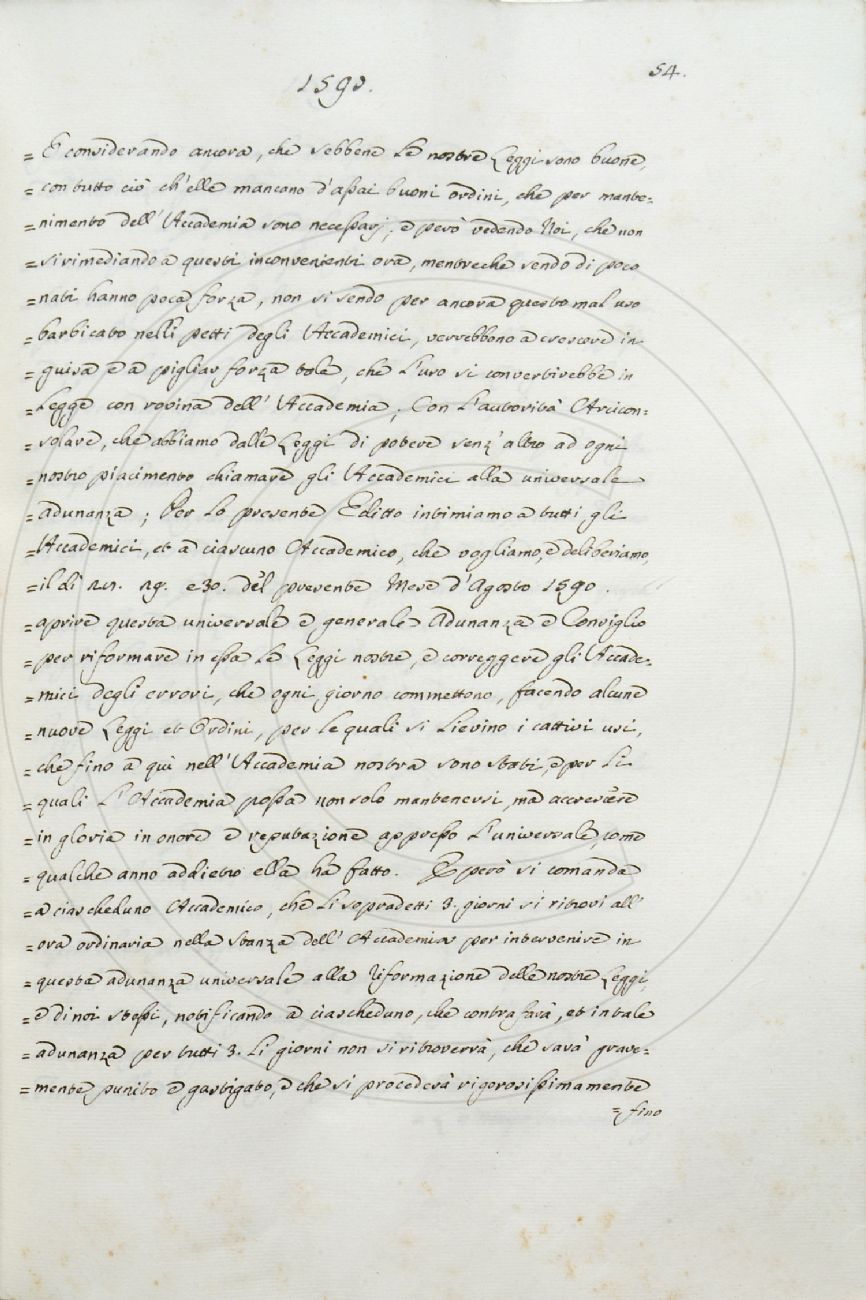 54.
1590.
= E considerando ancora, che sebbene le nostre Leggi sono buone,
= con tutto ciò ch'elle mancano d'assai buoni ordini, che per mante=
= nimento dell'Accademia sono necessarj; e però vedendo Noi, che non
= si rimediando a questi inconvenienti ora, mentreche sendo di poco
= nati hanno poca forza, non si sendo per ancora questo mal uso
= barbicato nelli petti degli Accademici, verrebbono a crescere in
= guisa e a pigliar forza tale, che l'uso si convertirebbe in
= Legge con rovina dell'Accademia; Con l'autorità Arcicon=
= solare, che abbiamo dalle Leggi di potere senz'altro ad ogni
= nostro piacimento chiamare gli Accademici alla universale
= adunanza; Per lo presente Editto intimiamo a tutti gli
= Accademici, et a ciascuno Accademico, che vogliamo, e deliberiamo,
= il dì 29. e 30. del presente Mese d'Agosto 1590.
= aprire questa universale e generale Adunanza e Consiglio
= per riformare in essa le Leggi nostre, e correggere gli Accade=
= mici degli errori, che ogni giorno commettono, facendo alcune
= nuove Leggi et Ordini, per le quali si lievino i cattivi usi,
= che fino a qui nell'Accademia nostra sono stati, e per li
= quali l'Accademia possa non solo mantenersi, ma accrescere
= in gloria in onore e reputazione appresso l'universale, come
= qualche anno addietro ella ha fatto. E però si comanda
= a ciascheduno Accademico, che li sopradetti 3. giorni si ritrovi all'
= ora ordinaria nella stanza dell'Accademia per intervenire in
= questa adunanza universale alla riformazione delle nostre Leggi,
= e di noi stessi, notificando a ciascheduno, che contrafarà, et in tale
= adunanza per tutti 3. li giorni non si ritroverrà, che sarà grave=
= mente punito e gastigato, e che si procederà rigorosissimamente
= fino